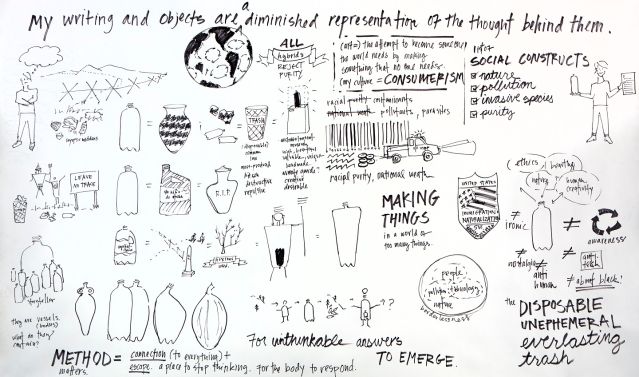 My writing and objects are a diminished representation of the thought behind them.
ALL
hybrids
REJECT
PURITY
(art=) the attempt to become someone
the world needs by making
something that no one needs.
(my culture = CONSUMERISM
list of
SOCIAL CONSTRUCTS
nature
pollution
invasive species
purity
racial purity contaminants
national pollutants, parasites
racial purity, national
TRASH
LEAVE
NO TRACE
R.I.P.
MAKING
THINGS
in a world of
too many things.
UNITED STATES
IMMIGRATION
NATURALIZATION
ethics
beauty
nature
human
creativity
≠
ironic
≠
≠
awareness
≠
nostalgic
≠
anti
human
anti
tech
≠ about black!
people
pollution
technology
nature
storyteller
they are vessels.
(bodies)
what do they
contain?
the DISPOSABLE
UNEPHEMERAL
everlasting
trash
For unthinkable answers
TO EMERGE.
METHOD = connection (to everything) +
matters.
escape. a place to stop thinking. for the body to respond.